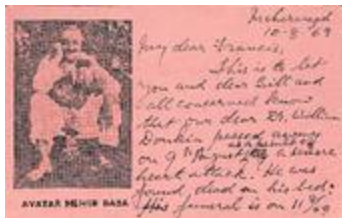 Meherazad
10-8-69
My dear Francis,
This is to let
you and dear Bill and
all concerned know
that our dear Dr. William
Donkin passed away
as a result of
on 9th August a severe
heart attack. He was
found dead on his bed.
His funeral is on 11/8/69
AVATAR MEHER BABA